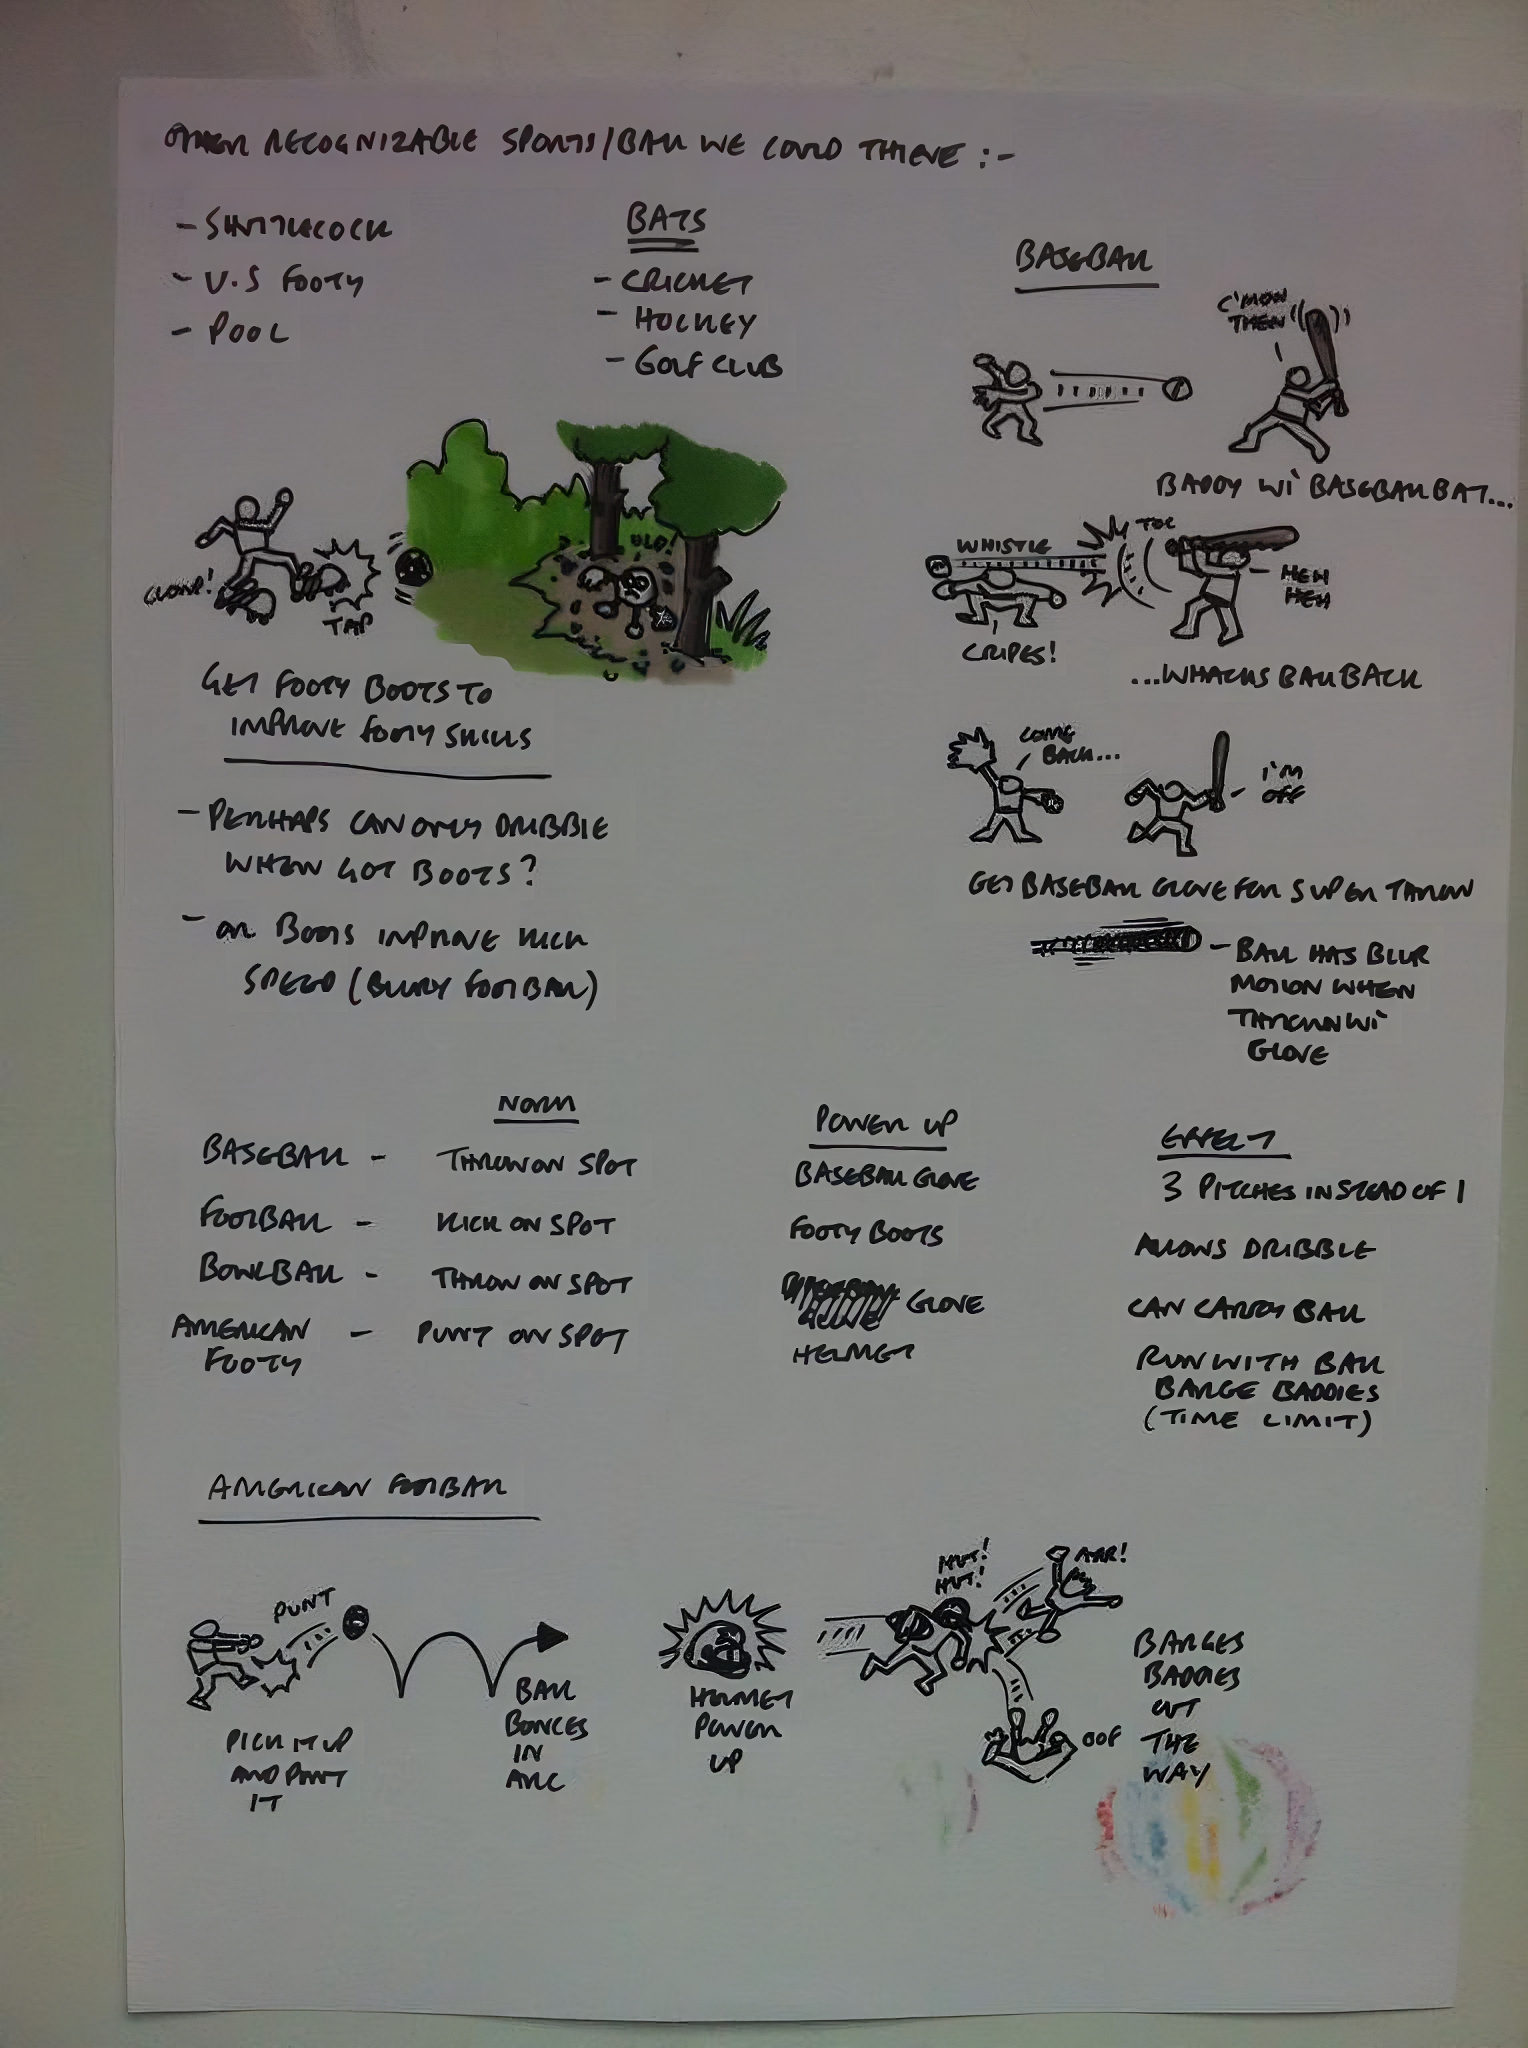 OTHER RECOGNIZABLE SPORTS/BALL WE COULD THIEVE :-
- SHUTTLECOCK
- U.S FOOTY
- POOL
BATS
- CRICKET
- HOCKEY
- GOLF CLUB
BASEBALL
C'MON
THEN
BADDY WI' BASEBALL BAT...
WHISTLE
TOC
HEH
HEH
CRIPES!
...WHACKS BALL BACK
COME
BACK...
I'M
OFF
GET BASEBALL GLOVE FOR SUPER THROW
- BALL HAS BLUR
MOTION WHEN
THROWN WI'
GLOVE
CLOMP!
TAP
GET FOOTY BOOTS TO
IMPROVE FOOTY SKILLS
- PERHAPS CAN ONLY DRIBBLE
WHEN GOT BOOTS?
- OR BOOTS IMPROVE KICK
SPEED (BLURY FOOTBALL)
NORM
POWER UP
EFFECT
BASEBALL - THROW ON SPOT BASEBALL GLOVE 3 PITCHES INSTEAD OF 1
FOOTBALL - KICK ON SPOT FOOTY BOOTS ALLOWS DRIBBLE
BOWLBALL - THROW ON SPOT GLOVE CAN CARRY BALL
AMERICAN - PUNT ON SPOT HELMET RUN WITH BALL
FOOTY BARGE BADDIES
(TIME LIMIT)
AMERICAN FOOTBALL
PUNT
PICK IT UP
AND PUNT
IT
BALL
BONCES
IN
ARC
HELMET
POWER
UP
HUT!
HUT!
ARR!
OOF
BARGES
BADDIES
OUT
THE
WAY